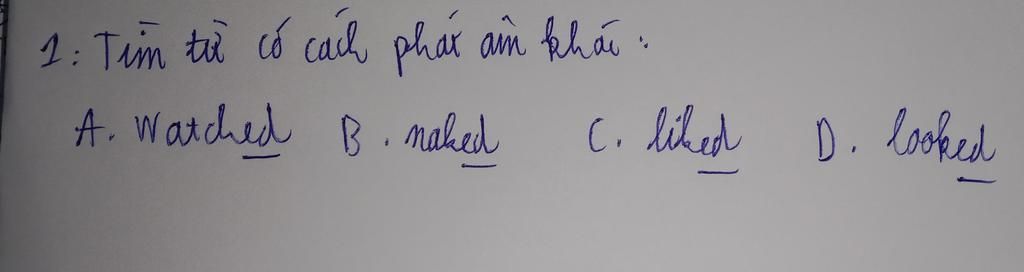 1: Tìm từ có cách phát âm khác:
A. Watched B. naked C. liked D. looked